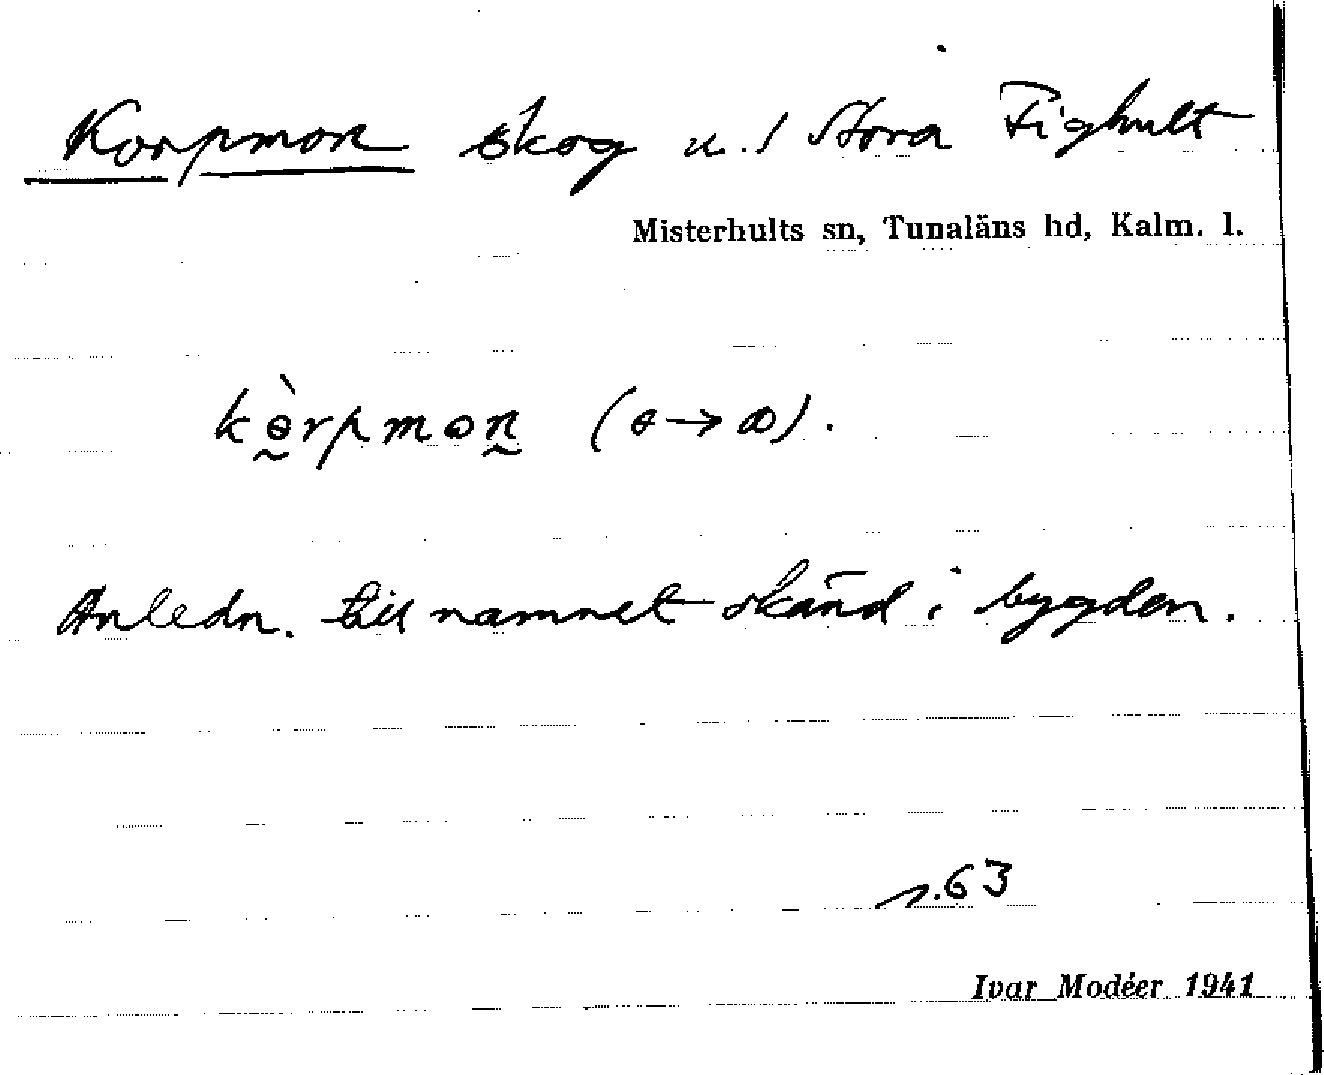 Korpmon skog u. / Stora Fighult
Misterhults sn, Tunaläns hd, Kalm. l.
kɵ̀rpmon (ɵ→ꝏ).
Anledn. till namnet okänd i bygden.
s. 63
Ivar Modéer 1941